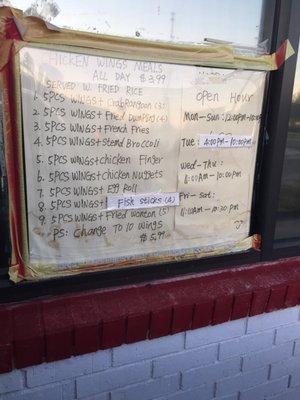 CHICKEN WINGS MEALS
ALL DAY $3.99
SERVED W. FRIED RICE
1. 5PCS WINGS + Crab Rangoon (3)
2. 5PCS WINGS + Fried Dumpling (4)
3. 5PCS WINGS + French Fries
4. 5PCS WINGS + Stemd Broccoli
5. 5PCS WINGS + chicken Finger
6. 5PCS WINGS + chicken Nuggets
7. 5PCS WINGS + Egg Roll
8. 5PCS WINGS + Fish sticks (4)
9. 5PCS WINGS + Fried wonton (5)
PS: Change To 10 Wings
$5.99
Open Hour
Mon - Sun:
Tue: 4:00PM - 10:00PM
Wed - Thu:
11:00AM - 10:00PM
Fri - Sat:
11:00AM - 10:30PM